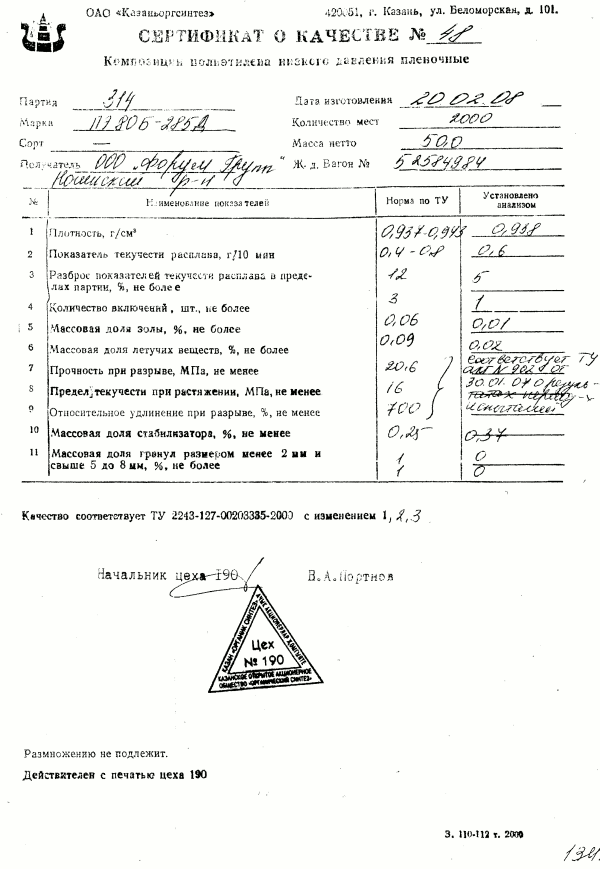 ОАО «Казаньоргсинтез» 420051, г. Казань, ул. Беломорская, д. 101.
СЕРТИФИКАТ О КАЧЕСТВЕ № 48
Композиция полиэтилена низкого давления пленочные
Партия 314 Дата изготовления 20.02.08
Марка ПЭ80Б-285Д Количество мест 2000
Сорт — Масса нетто 50,0
Получатель ООО „Форум Групп" Ж. д. Вагон № 52584984
р-н
№ Наименование показателей Норма по ТУ Установлено анализом
1 Плотность, г/см³ 0,937-0,943 0,938
2 Показатель текучести расплава, г/10 мин 0,4-0,8 0,6
3 Разброс показателей текучести расплава в преде-
лах партии, %, не более 12 5
4 Количество включений, шт., не более 3 1
5 Массовая доля золы, %, не более 0,06 0,01
6 Массовая доля летучих веществ, %, не более 0,09 0,02
7 Прочность при разрыве, МПа, не менее 20,6 соответствует ТУ
8 Предел текучести при растяжении, МПа, не менее 16
9 Относительное удлинение при разрыве, %, не менее 700 испытаний
10 Массовая доля стабилизатора, %, не менее 0,25 0,37
11 Массовая доля гранул размером менее 2 мм и 1 0
свыше 5 до 8 мм, %, не более 1 0
Качество соответствует ТУ 2243-127-00203335-2000 с изменением 1, 2, 3
Начальник цеха 190 В.А.Портнов
КАЗАН «ОРГАНИК СИНТЕЗ» АЧЫК АКЦИОНЕРЛАР ҖӘМГЫЯТЕ
Цех
№ 190
КАЗАНСКОЕ ОТКРЫТОЕ АКЦИОНЕРНОЕ
ОБЩЕСТВО «ОРГАНИЧЕСКИЙ СИНТЕЗ»
Размножению не подлежит.
Действителен с печатью цеха 190
З. 110-112 т. 2000